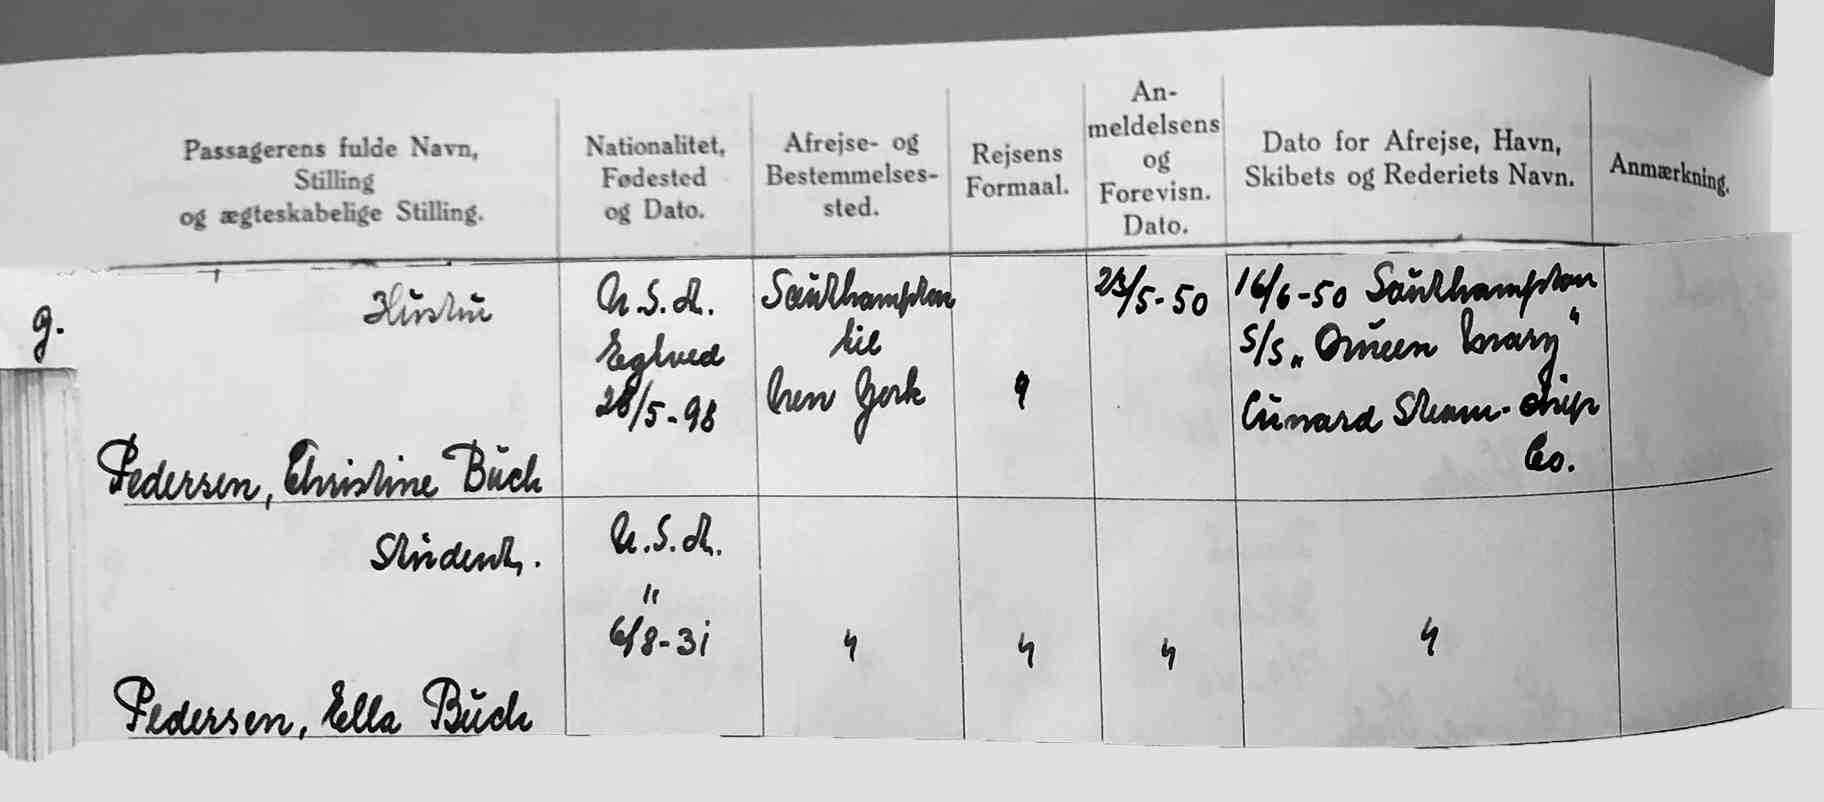 Passagerens fulde Navn,
Stilling
og ægteskabelige Stilling.
Nationalitet,
Fødested
og Dato.
Afrejse- og
Bestemmelses-
sted.
Rejsens
Formaal.
An-
meldelsens
og
Forevisn.
Dato.
Dato for Afrejse, Havn,
Skibets og Rederiets Navn.
Anmærkning.
g.
Hustru
Pedersen, Christine Buch
U.S.A.
Egtved
28/5-98
Southampton
til
New York
"
23/5-50
16/6-50 Southampton
S/S „Queen Mary"
Cunard Steam-ship
Co.
Student.
Pedersen, Ella Buch
U.S.A.
"
6/8-31
"
"
"
"